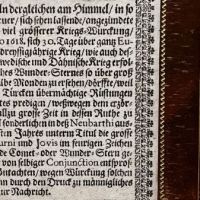 ln dergleichen am Himmel / in so
euer / sich sehen lassende / angezündete
viel grösserer Kriegs-Würckung /
o 1618, sich 30. Tage über gantz Eu-
dreyssigjährige Krieg / wie auch de-
wedische und Dähnische Krieg erfol-
ches Wunder-Sternes so über groß
albe Monden zu ersehen /
Türcken übermächtige Rüstung
tes predigen / weßwegen dem
allzu grosse Zeit in dessen Ruthe zu
sonderlichen in deß Neubarthi aus-
sten Jahres unterm Titul die grosse
turni und Jovis im feurigen Zeichen
de Comet- oder Wunder-Stern ge-
von selbiger Conjunction
Gutachten / wegen Würckung solchen
nn durch den Druck zu männigliches
ur Nachricht.